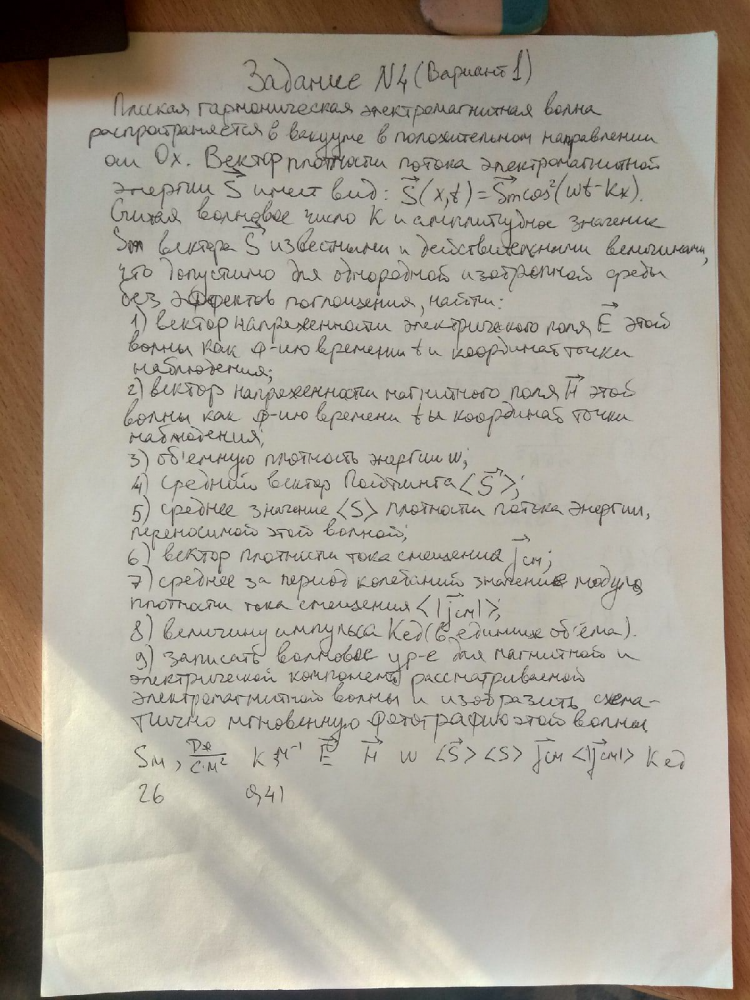 Задание N4 (Вариант 1)
Плоская гармоническая электромагнитная волна
распространяется в вакууме в положительном направлении
оси Ox. Вектор плотности потока электромагнитной
энергии S⃗ имеет вид: S⃗(x,t) = S⃗m cos²(wt-Kx).
Считая волновое число K и амплитудное значение
Sm вектора S⃗ известными и действительными величинами,
что допустимо для однородной изотропной среды
без эффектов поглощения, найти:
1) вектор напряженности электрического поля E⃗ этой
волны как ф-ию времени t и координат точки
наблюдения;
2) вектор напряженности магнитного поля H⃗ этой
волны как ф-ию времени t и координат точки
наблюдения;
3) об'емную плотность энергии w;
4) средний вектор Пойтинга <S⃗>;
5) среднее значение <S> плотности потока энергии,
переносимой этой волной;
6) вектор плотности тока смещения j⃗см;
7) среднее за период колебаний значение модуля
плотности тока смещения <|j⃗см|>;
8) величину импульса Kед (в единице об'ёма).
9) записать волновое ур-е для магнитной и
электрической компонент рассматриваемой
электромагнитной волны и изобразить схема-
тично мгновенную фотографию этой волны
Sм, Дж/с·м² K, м⁻¹ E⃗ H⃗ w <S⃗> <S> j⃗см <|j⃗см|> Kед
26 0,41